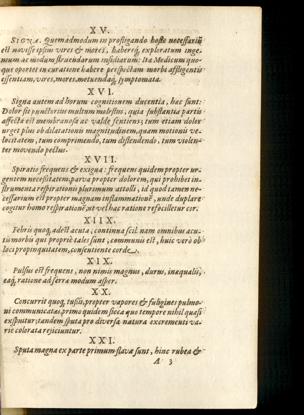 XV.
SIGNÆ. Quemadmodum in profligando hoste necessariũ
est novisse ipsius vires & mores, habereq, exploratum inge-
nium ac modum struendarum insidiarum: Ita Medicum quo-
que oportet in curatione habere perspectam morbi affligentis
essentiam, vires, mores, motum eq, symptomata.
XVI.
Signa autem ad horum cognitionem ducentia, hæc sunt:
Dolor fit punctorius multum molestus, quia substantia partis
affectæ est membranosa ac valde sentiens; tum etiam dolor
urget plus ob dilatationis magnitudinem, quam motionis ve-
locitatem, tum comprimendo, tum distendendo, tum violen-
ter movendo pectus.
XVII.
Spiratio frequens & exigua: frequens quidem propter ur-
gentem necessitatem, parva propter dolorem, qui prohibet in-
strumenta respirationis plurimum attolli, id quod tamen ne-
cessarium est propter magnam inflammationẽ, unde duplare
cogitur homo respirationẽ, ut vel hac ratione refocilletur cor.
XIIX.
Febris quoq, adest acuta, continua scil. nam omnibus acu-
tis morbis qui propriè tales sunt, communis est, huic verò ob
loci propinquitatem, consentiente corde.
XIX.
Pulsus est frequens, non nimis magnus, durus, inæqualis,
eaq, ratione ad serræ modum asper.
XX.
Concurrit quoq, tussis, propter vapores & fuligines pulmo-
ni communicatas, primo quidem sicca quo tempore nihil quasi
exspuitur; tandem sputa pro diversa natura excrementi va-
riè colorata rejiciuntur.
XXI.
Sputa magna ex parte primum flava sunt, hinc rubea &
A 3